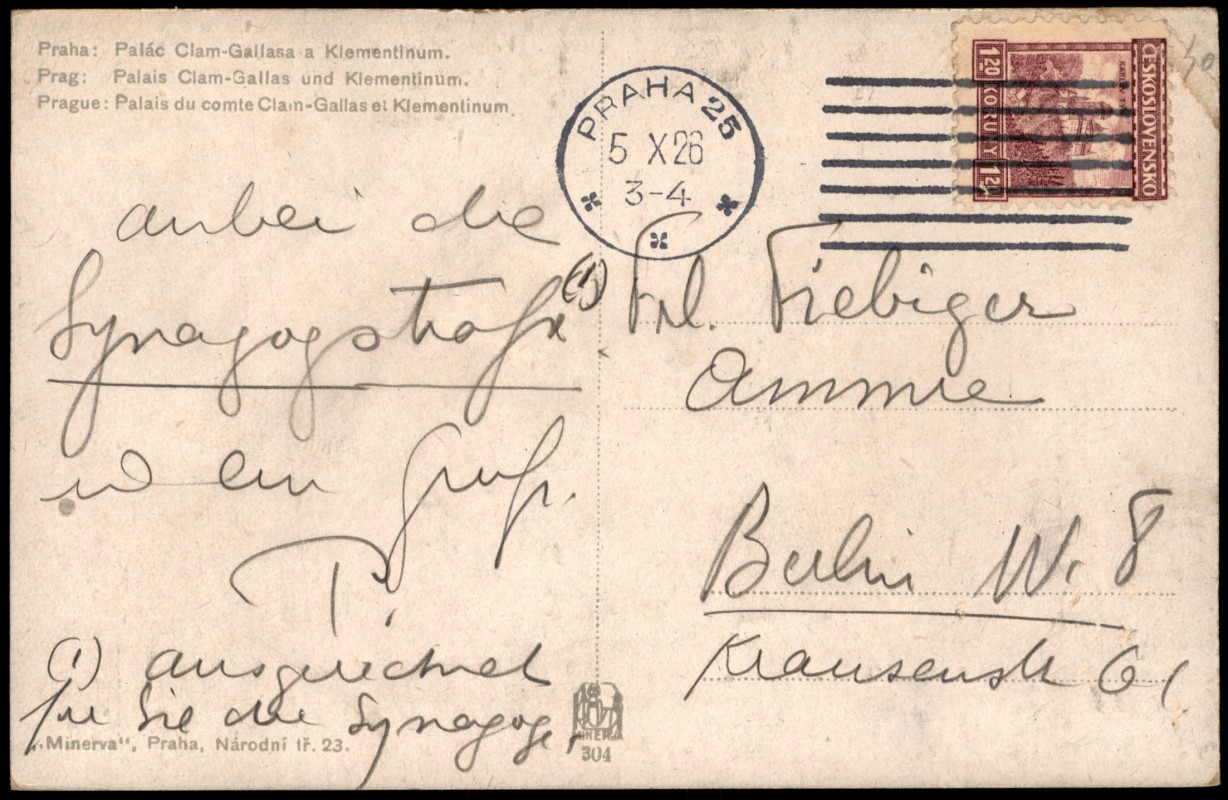 Praha: Palác Clam-Gallasa a Klementinum.
Prag: Palais Clam-Gallas und Klementinum.
Prague: Palais du comte Clam-Gallas et Klementinum
PRAHA 25
5 X 26
3-4
ČESKOSLOVENSKO
1.20 KORUNY 1.20
40
anbei die
Synagogstraße (1)
u ein Gruß.
P.
(1) ausgerechnet
für Sie die Synagoge!
Frl. Fiebiger
Ammie
Berlin W. 8
Krausenstr 61
„Minerva", Praha, Národní tř. 23.
MINERVA
304